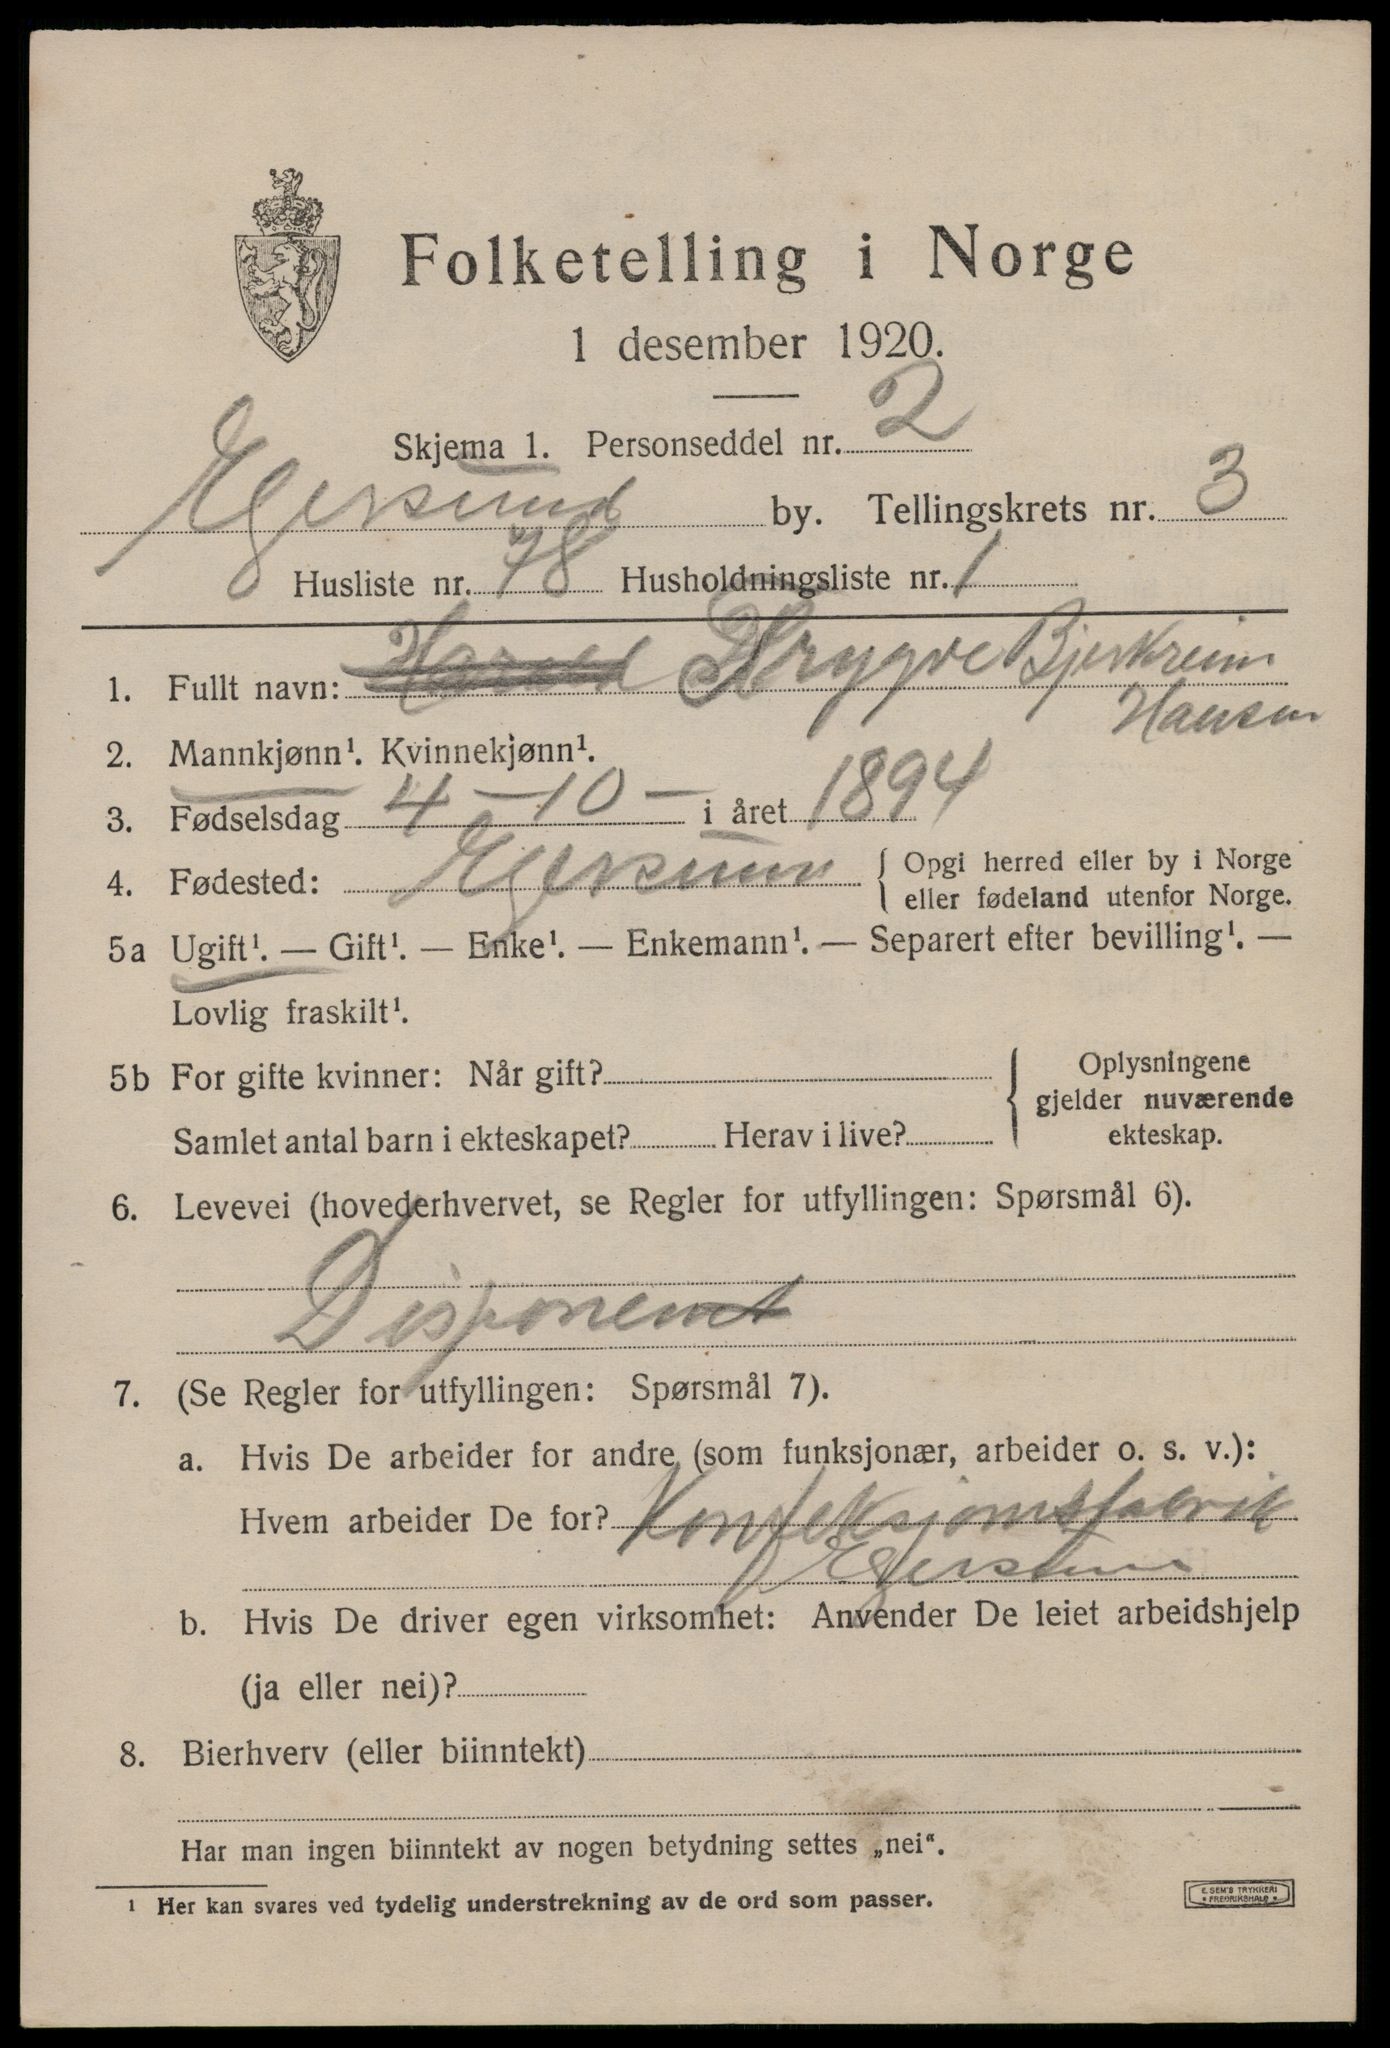 Folketelling i Norge
1 desember 1920.
Skjema 1. Personseddel nr. 2
Egersund by. Tellingskrets nr. 3
Husliste nr. 78 Husholdningsliste nr. 1
1. Fullt navn: Harald Trygve Bjerkreim
Hansen
2. Mannkjønn¹. Kvinnekjønn¹.
3. Fødselsdag 4 - 10 - i året 1894
4. Fødested: Egersund { Opgi herred eller by i Norge
eller fødeland utenfor Norge.
5a Ugift¹. — Gift¹. — Enke¹. — Enkemann¹. — Separert efter bevilling¹. —
Lovlig fraskilt¹.
5b For gifte kvinner: Når gift? { Oplysningene
gjelder nuværende
Samlet antal barn i ekteskapet? Herav i live? ekteskap.
6. Levevei (hovederhvervet, se Regler for utfyllingen: Spørsmål 6).
Disponent
7. (Se Regler for utfyllingen: Spørsmål 7).
a. Hvis De arbeider for andre (som funksjonær, arbeider o. s. v.):
Hvem arbeider De for? Konfeksjonsfabrik
Egersund
b. Hvis De driver egen virksomhet: Anvender De leiet arbeidshjelp
(ja eller nei)?
8. Bierhverv (eller biinntekt)
Har man ingen biinntekt av nogen betydning settes „nei“.
¹ Her kan svares ved tydelig understrekning av de ord som passer.
E. SEM'S TRYKKERI
* FREDRIKSHALD *